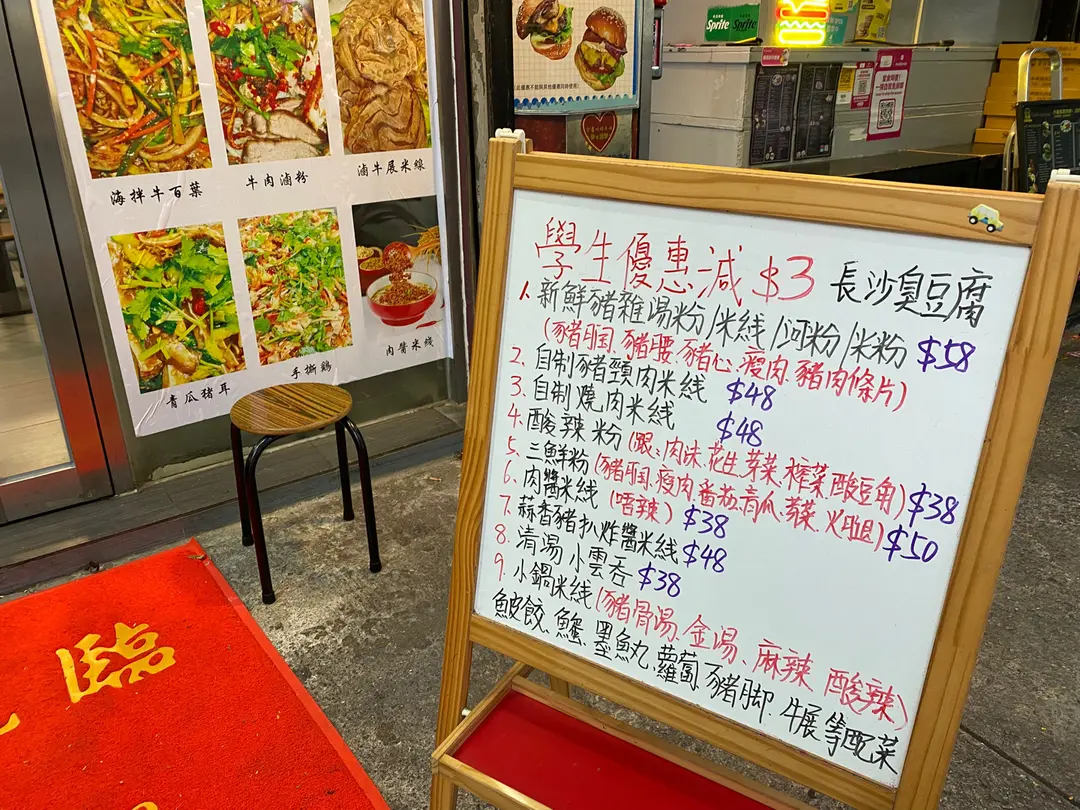 海拌牛百葉
牛肉滷粉
滷牛展米線
青瓜豬耳
手撕鶏
肉醬米綫
Sprite
Sprite
學生優惠減 $3 長沙臭豆腐
1. 新鮮豬雜湯粉/米綫/河粉/米粉 $58
(豬膶、豬腰、豬心、瘦肉、豬肉條片)
2. 自制豬頸肉米线 $48
3. 自制燒肉米线 $48
4. 酸辣粉 (跟:肉沫、花生、芽菜、榨菜、酸豆角) $38
5. 三鮮粉 (豬膶、瘦肉、番茄、青瓜、芽菜、火腿) $50
6. 肉醬米线 (唔辣) $38
7. 蒜香豬扒炸醬米線 $48
8. 清湯小雲吞 $38
9. 小鍋米线 (豬骨湯、金湯、麻辣 酸辣)
魚皮餃、蟹、墨魚丸、蘿蔔、豬脚、牛展等配菜
臨